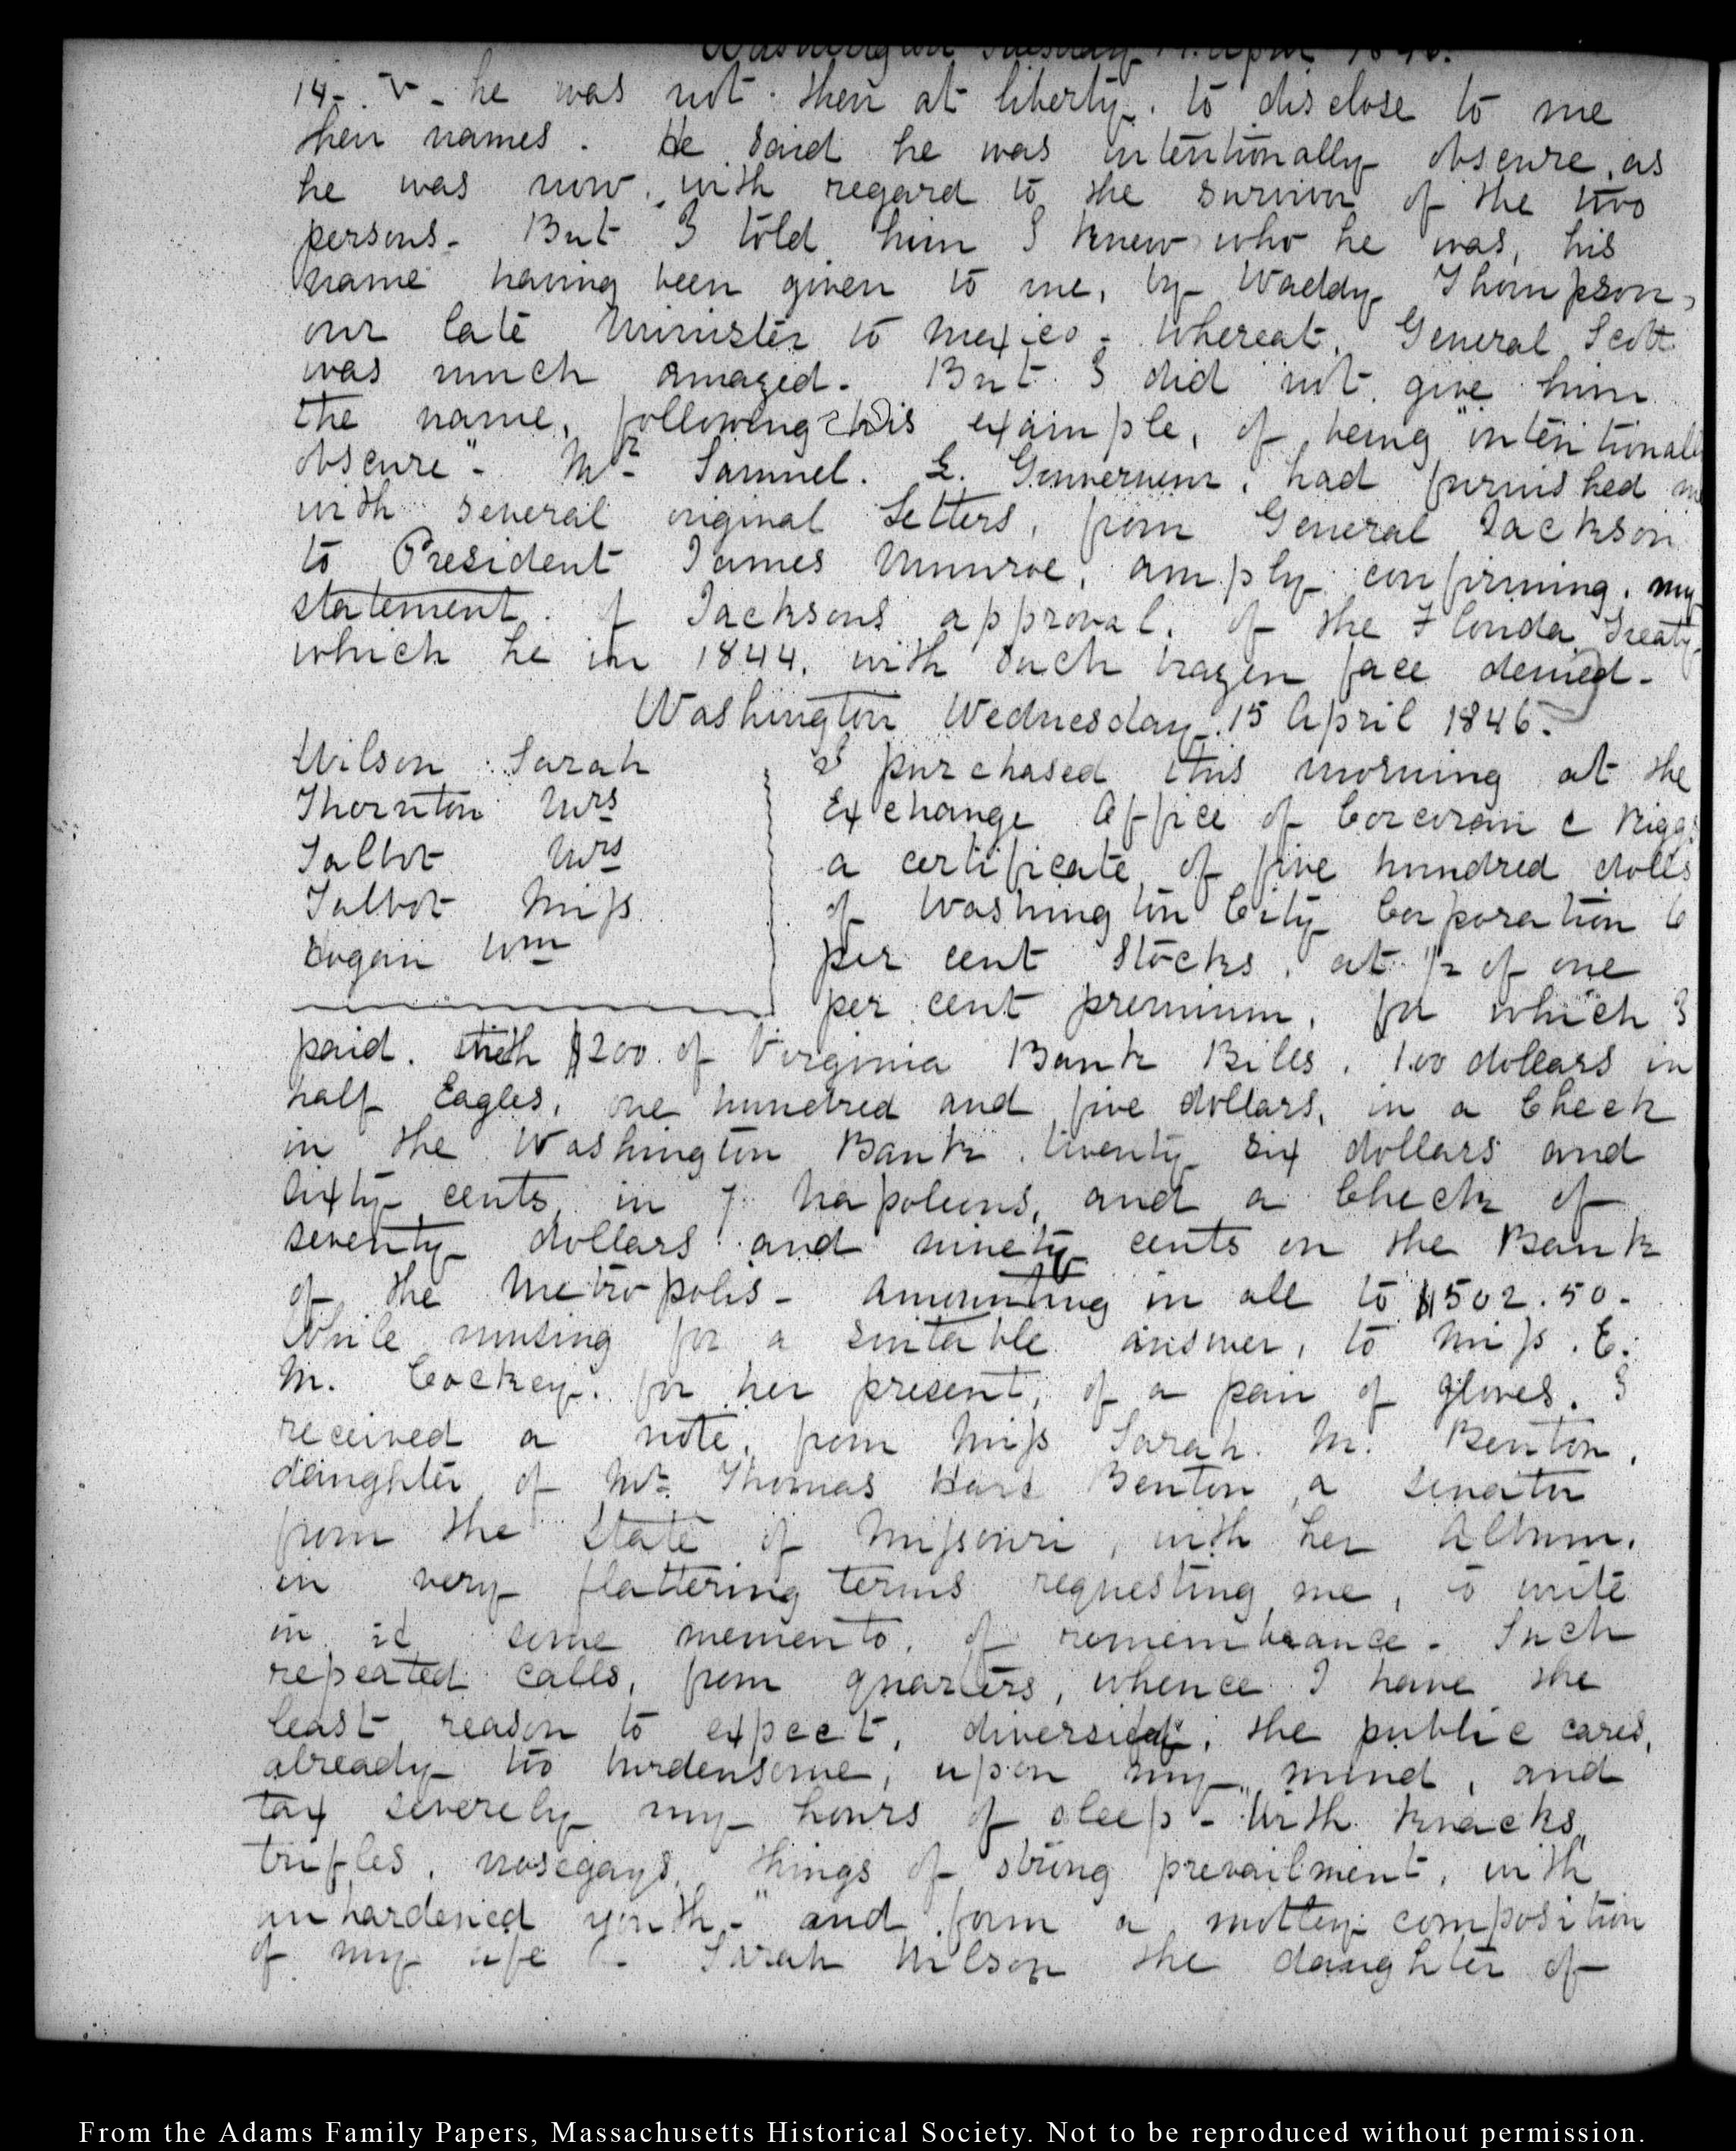 Washington Tuesday 14. April 1846.
14. V. he was not then at liberty. to disclose to me
their names. He said he was intentionally obscure, as
he was now, with regard to the survivor of the two
persons. But I told him I knew who he was, his
name having been given to me, by Waddy Thompson,
our late Minister to Mexico - Whereat, General Scott
was much amazed. But I did not give him
the name, following his example, of being "intentionally
obscure". Mr. Samuel. L. Gouverneur, had furnished me
with several original Letters, from General Jackson
to President James Munroe, amply confirming, my
statement. of Jacksons approval. of the Florida Treaty
which he in 1844. with such brazen face denied.
Washington Wednesday. 15 April 1846.
Wilson Sarah
Thornton Mrs
Talbot Mrs
Talbot Miss
Cogan Wm
I purchased this morning at the
Exchange Office of Corcoran & Riggs
a certificate of five hundred dolls
of Washington City Corporation 6
per cent Stocks, at 1/2 of one
per cent premium, for which I
paid. with $200. of Virginia Bank Bills, 100 dollars in
half Eagles, one hundred and five dollars, in a Check
in the Washington Bank. twenty six dollars and
sixty cents in 7 Napoleons, and a Check of
seventy dollars and ninety cents on the Bank
of the Metropolis - amounting in all to $502.50.
While musing for a suitable answer, to Miss. E.
M. Cockey. for her present, of a pair of gloves. I
received a note, from Miss Sarah. M. Benton,
daughter of Mr. Thomas Hart Benton a Senator
from the State of Missouri, with her Album.
in very flattering terms requesting me, to write
in it some memento. of remembrance. Such
repeated calls, from quarters, whence I have the
least reason to expect, diversify, the public cares,
already too burdensome, upon my mind, and
tax severely my hours of sleep - "With knacks,
trifles, nosegays, things of strong prevailment, with
unhardened youth." and form a motley composition
of my life - Sarah Wilson the daughter of
From the Adams Family Papers, Massachusetts Historical Society. Not to be reproduced without permission.